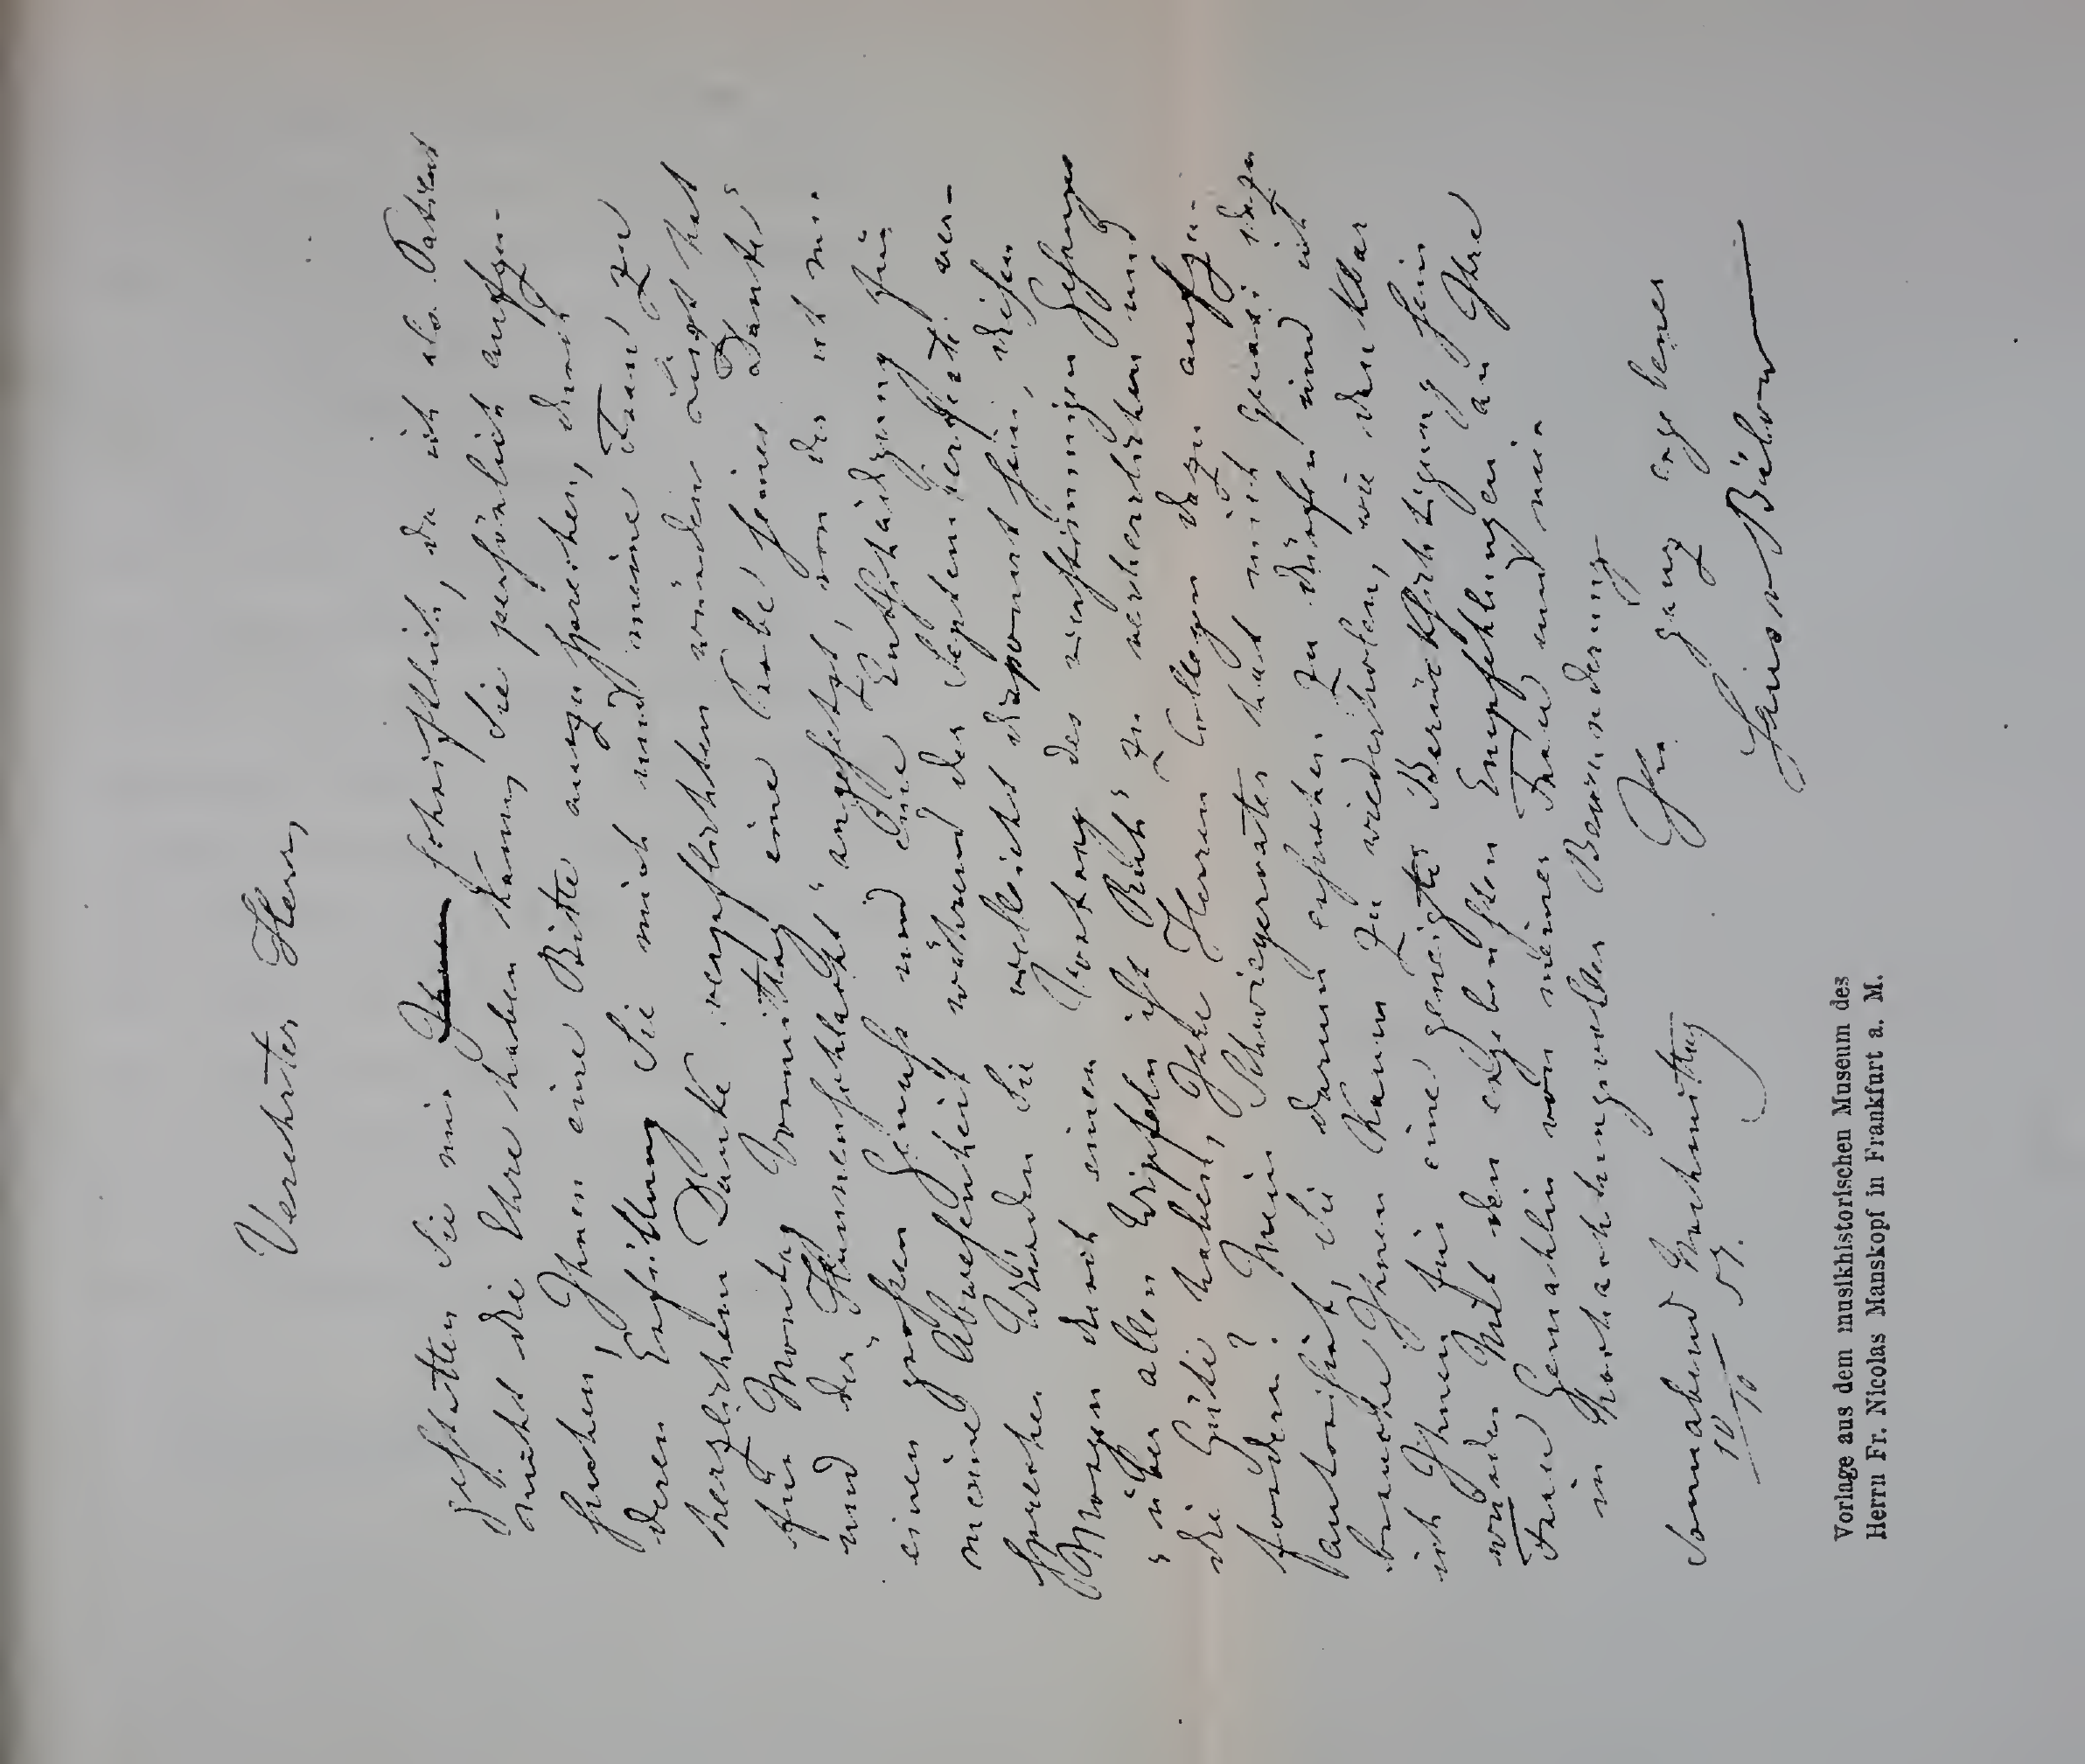 Verehrter Herr,
gestatten Sie mir Ihnen schriftlich, da ich als Patient
nicht die Ehre haben kann, Sie persönlich aufzu-
suchen, Ihnen eine Bitte auszusprechen, durch
deren Erfüllung Sie mich und meine Frau, zu
herzlichem Danke verpflichten würden. Liszt hat
für Montag Vormittag eine Probe seines „Dantes“
und der „Hunnenschlacht“ angesetzt, von der ich mir
einen großen Genuß und eine Entschädigung für
meine Abwesenheit während der Septemberfeste ver-
spreche. Würden Sie vielleicht disponirt sein, diesen
Morgen durch einen Vortrag des vierstimmigen Gesanges
„über allen Wipfeln ist Ruh“ zu verherrlichen und
die Güte haben, Ihre Herren Collegen dazu aufzu-
fordern? Mein Schwiegervater hat mich quasi dazu
autorisirt, Sie darum ersuchen zu dürfen und ich
brauche Ihnen kaum zu wiederholen, wie dankbar
ich Ihnen für eine geneigte Berücksichtigung sein
würde. Mit den ergebensten Empfehlungen an Ihre
Frau Gemahlin von meiner Frau und mir
in hochachtungsvoller Bewunderung
Ihr ganz ergebener
Hans v Bülow
Sonnabend Nachmittag
57.
Vorlage aus dem musikhistorischen Museum des
Herrn Fr. Nicolas Manskopf in Frankfurt a. M.